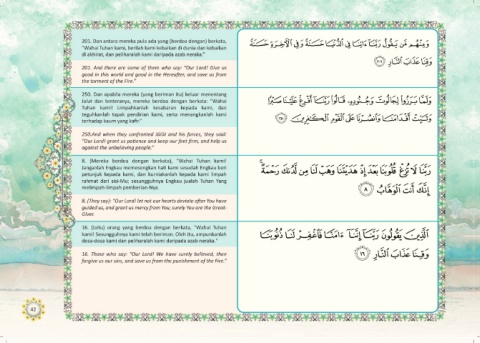 201. Dan antara mereka pula ada yang (berdoa dengan) berkata,
"Wahai Tuhan kami, berilah kami kebaikan di dunia dan kebaikan
di akhirat, dan peliharalah kami daripada azab neraka."
201. And there are some of them who say: "Our Lord! Give us
good in this world and good in the Hereafter, and save us from
the torment of the Fire."
وَمِنْهُم مَّن يَقُولُ رَبَّنَآ ءَاتِنَا فِى ٱلدُّنْيَا حَسَنَةً وَفِى ٱلْءَاخِرَةِ حَسَنَةً
وَقِنَا عَذَابَ ٱلنَّارِ ٢٠١
250. Dan apabila mereka (yang beriman itu) keluar menentang
Jalut dan tenteranya, mereka berdoa dengan berkata: "Wahai
Tuhan kami! Limpahkanlah kesabaran kepada kami, dan
teguhkanlah tapak pendirian kami, serta menangkanlah kami
terhadap kaum yang kafir."
250.And when they confronted Jālūt and his forces, they said:
"Our Lord! grant us patience and keep our feet firm, and help us
against the unbelieving people."
وَلَمَّا بَرَزُوا۟ لِجَالُوتَ وَجُنُودِهِۦ قَالُوا۟ رَبَّنَآ أَفْرِغْ عَلَيْنَا صَبْرًا
وَثَبِّتْ أَقْدَامَنَا وَٱنصُرْنَا عَلَى ٱلْقَوْمِ ٱلْكَٰفِرِينَ ٢٥٠
8. (Mereka berdoa dengan berkata), "Wahai Tuhan kami!
Janganlah Engkau memesongkan hati kami sesudah Engkau beri
petunjuk kepada kami, dan kurniakanlah kepada kami limpah
rahmat dari sisi-Mu; sesungguhnya Engkau jualah Tuhan Yang
melimpah-limpah pemberian-Nya.
8. (They say): "Our Lord! let not our hearts deviate after You have
guided us, and grant us mercy from You; surely You are the Great-
Giver.
رَبَّنَا لَا تُزِغْ قُلُوبَنَا بَعْدَ إِذْ هَدَيْتَنَا وَهَبْ لَنَا مِن لَّدُنكَ رَحْمَةً ۚ
إِنَّكَ أَنتَ ٱلْوَهَّابُ ٨
16. (Iaitu) orang yang berdoa dengan berkata, "Wahai Tuhan
kami! Sesungguhnya kami telah beriman. Oleh itu, ampunkanlah
dosa-dosa kami dan peliharalah kami daripada azab neraka."
16. Those who say: "Our Lord! We have surely believed, then
forgive us our sins, and save us from the punishment of the Fire."
ٱلَّذِينَ يَقُولُونَ رَبَّنَآ إِنَّنَآ ءَامَنَّا فَٱغْفِرْ لَنَا ذُنُوبَنَا
وَقِنَا عَذَابَ ٱلنَّارِ ١٦
42